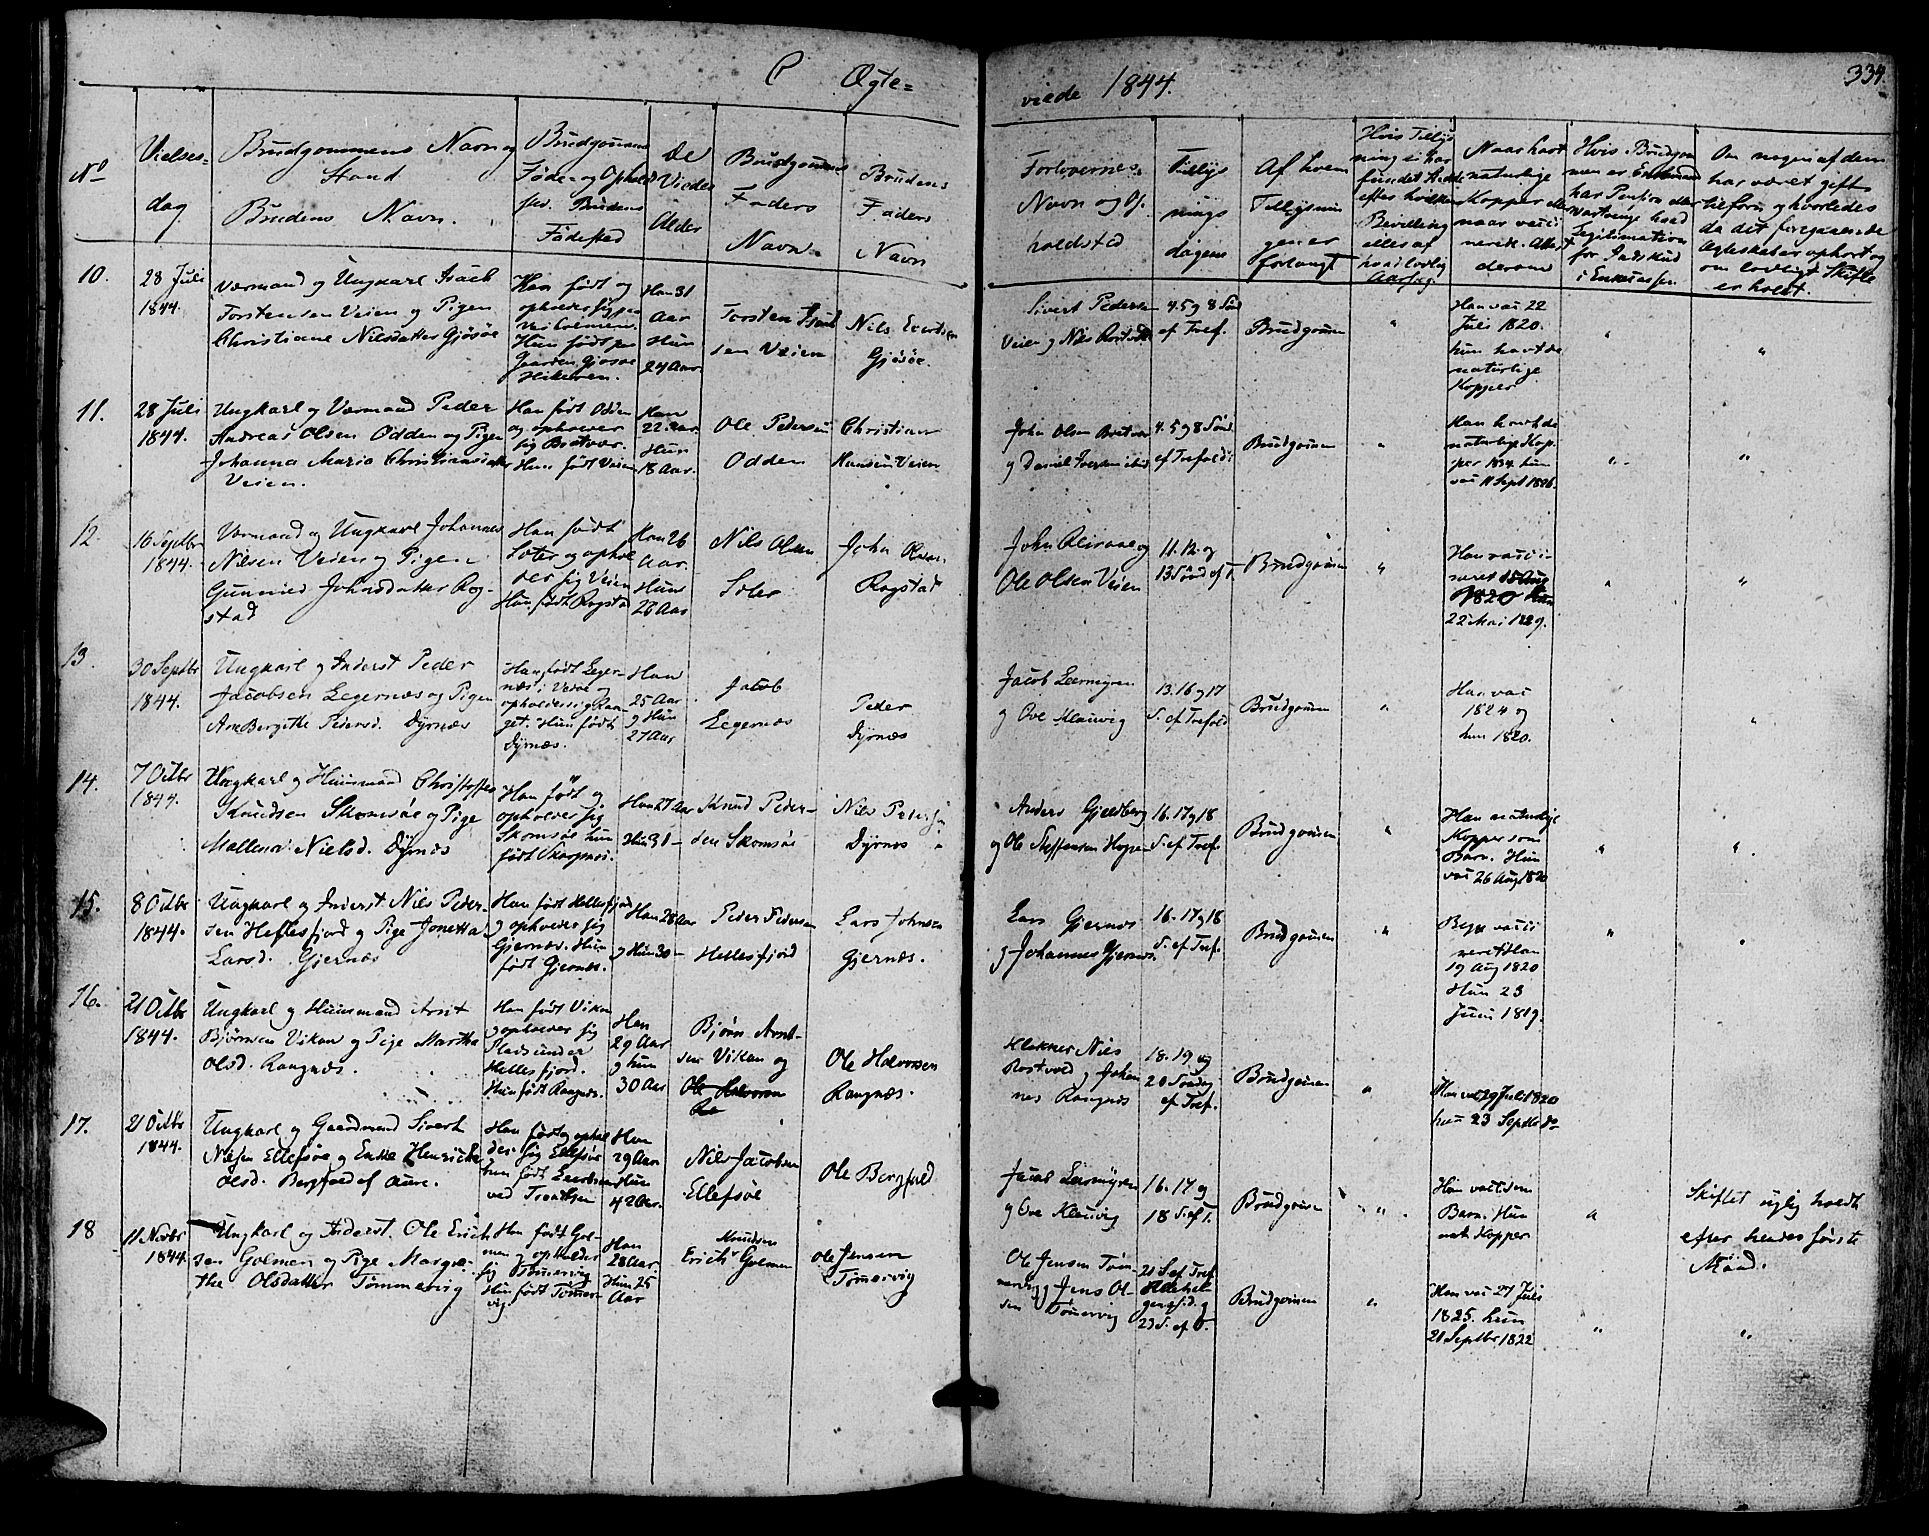 C Ægte=
viede 1844.
334.
No
Vielses=
dag
Brudgommens Navn og
Stand
Brudens Navn.
Brudgomens
Føde- og Ophold
sted. Brudens
Fødested
De
Viedes
Alder
Brudgomens
Faders
Navn.
Brudens
Faders
Navn
Forlovernes
Navn og Op-
holdsted
Tillys
nings
dagene
Af hvem
Tillysnin
gen er
forlangt
Hvis Tillys
ning ei har
fundet Sted
efter hvilken
Bevilling
eller af
hvad lovlig
Aarsag.
Naar havt
naturlige
Kopper eller
naar vacci
nerede. Attest
derom
Hvis Brudgom
men er Enkemand
har Pension eller
Legitimation
for Indskud
i Enkecassen
Om nogen af dem
har været gift
tilforn og hvorledes
da det foregaaende
Ægteskab er ophørt og
om lovligt Skifte
er holdt.
10.
28 Juli
1844.
Værmand og Ungkarl Isach
Torstensen Veien og Pigen
Christiane Nilsdatter Gjøsøe
Han født og
opholder sig paa
Veiholmen.
Hun født paa
Gaarden Gjøsøe
Han 31
Aar
Hun
24 Aar.
Torsten
sen Veien
Nils
Gjøsøe.
Sivert Pedersen
Veien og Nils
4.5 og 8 Sønd
ef Tref.
Brudgomen
"
Han vac 22
Juli 1820.
hun havt de
naturlige
Kopper
"
"
11.
28 Juli
1844.
Ungkarl og Værmand Peder
Andreas Olsen Odden og Pigen
Johanna Maria Christiansdatter
Veien.
Han født Odden
og opholder
sig Bratvær.
Hun født Veien
Han
22 Aar.
Hun
18 Aar.
Ole Pedersen
Odden
Christian
Hansen Veien
John Olsen Bratvær
og Daniel Iversen ibid
4.5 og 8 Sønd
ef Trefold:
Brudgomen
"
Han havt de
naturlige Kop
per 1834 hun
vac 11 Sept 1826.
"
"
12.
16 Septbr
1844.
Værmand og Ungkarl Johannes
Nilsen Veien og Pigen
Gunnied Johnsdatter Rog-
stad
Han født
Soter og ophol
der sig Veien
Hun født Rogstad
Han 26
Aar.
Hun
28 Aar
Nils Olsen
Soter
John
Rogstad
John
og
Ole Olsen Veien
11.12. og
13 Sønd ef T.
Brudgomen
"
Han vacci-
neret 15 Aug
1820 Hun
22 Mai 1829.
"
"
13.
30 Septbr
1844.
Ungkarl og Inderst Peder
Jacobsen Legernæs og Pigen
Ane Bergithe Pedersd. Dyrnæs
Han født Leger-
næs i Vedøe og
opholder sig Ram
get. Hun født
Dyrnæs.
Han
25 Aar
og Hun
27 Aar
Jacob
Legernæs
Peder
Dyrnæs
Jacob Leermyren
og Ove Klauvig
13.16 og 17
S. ef Trefold
Brudgomen
"
Han vac
1824 og
hun 1820.
"
"
14.
7 Octbr
1844.
Ungkarl og Huusmand Christoffer
Knudsen Skomsøe og Pige
Mallena Nielsd. Dyrnæs
Han født og
opholder sig
Skomsøe hun
født Skarpnæs.
Han 27 Aar
Hun 31 -
Knud Peder-
sen Skomsøe
Nils Pedersen
Dyrnæs
Anders Gjeldberg
og Ole Steffensen Hopen
16.17 og 18
S. ef Tref.
Brudgomen
"
Han naturlige
Kopper som
Barn. Hun
vac 26 Aug 1820
"
"
15.
8 Octbr
1844.
Ungkarl og Inderst Nils Peder-
sen Hellesfjord og Pige Jonetta
Larsd. Gjernæs
Han født Hellesfjord
og opholder sig
Gjernæs. Hun
født Gjernæs.
Han 28 Aar
og Hun 30 -
Peder Pedersen
Hellesfjord
Lars Johnsen
Gjernæs.
Lars Gjernæs
og Johannes Gjernæs.
16.17 og 18
S. ef Tref.
Brudgomen
"
Begge vacci
neret Han
19 Aug 1820
Hun 23
Juni 1819.
"
"
16.
21 Octbr
1844.
Ungkarl og Huusmand Arnt
Bjørnsen Vikan og Pige Martha
Olsd. Rangnæs.
Han født Vikan
og opholder sig
Plads under
Hellesfjord.
Hun født Rangnæs.
Han
29 Aar
og hun
30 Aar
Bjørn Arnt-
sen Vikan og
Ole Halvorsen
Ole Halvorsen
Rangnæs.
Klokker Nils
Rostvold og Johan
nes Rangnæs
18.19 og
20 Søndag
ef Tref.
Brudgomen
"
Han vac 29 Juli 1820
hun 23 Septbr do
17.
21 Octbr
1844.
Ungkarl og Gaardmand Sivert
Nilsen Ellefsøe og Enke Henricha
Olsd. Bergfald af Aure.
Han født og ophol
der sig Ellefsøe
hun født
ved Trondhjem
Han
29 Aar
Hun
42 Aar.
Nils Jacobsen
Ellefsøe
Ole Bergfald
Jacob Leermyren
og Ove Klauvig
16.17 og
18 S. ef T.
Brudgomen
"
Han vac som
Barn. Hun
nat Kopper
"
Skiftet vistlig holdt
efter hendes første
Mand.
18
11 Novbr
1844.
Ungkarl og Inderst. Ole Erich
sen Golmen og Pige Margre-
the Olsdatter Tømmervig
Han født Gol-
men og opholder
sig Tømervig
Hun født Tømer-
vig.
Han
28 Aar.
Hun 25
Aar
Knudsen
Erich Golmen
Ole Jensen
Tømervig
Ole Jensen Tøm-
mervig og Jens Ol-
sen Tømervig
21 S. ef Tref
Allehel-
gensd. og
23 S. ef T.
Brudgomen
"
Han vac 27 Juli
1825. hun
21 Septbr 1822
"
"